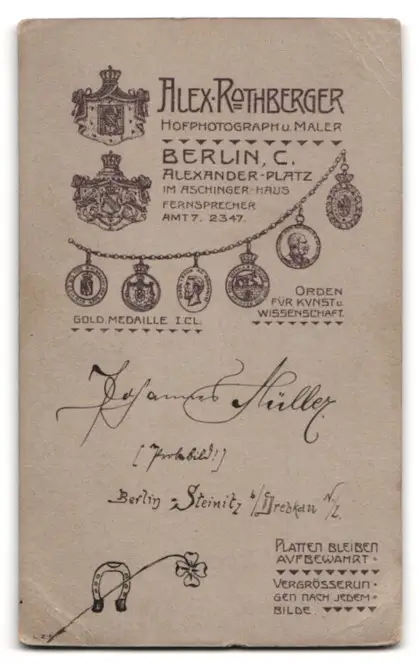 ALEX·ROTHBERGER
HOFPHOTOGRAPH U. MALER
BERLIN, C.
ALEXANDER-PLATZ
IM ASCHINGER-HAUS
FERNSPRECHER
AMT 7. 2347.
ORDEN
FÜR KVNST U.
WISSENSCHAFT.
GOLD. MEDAILLE I.CL.
Johannes Müller
[Probebild!]
Berlin - Steinitz b/Drebkau N/L.
PLATTEN BLEIBEN
AVFBEWAHRT
VERGRÖSSERUN-
GEN NACH JEDEM
BILDE.